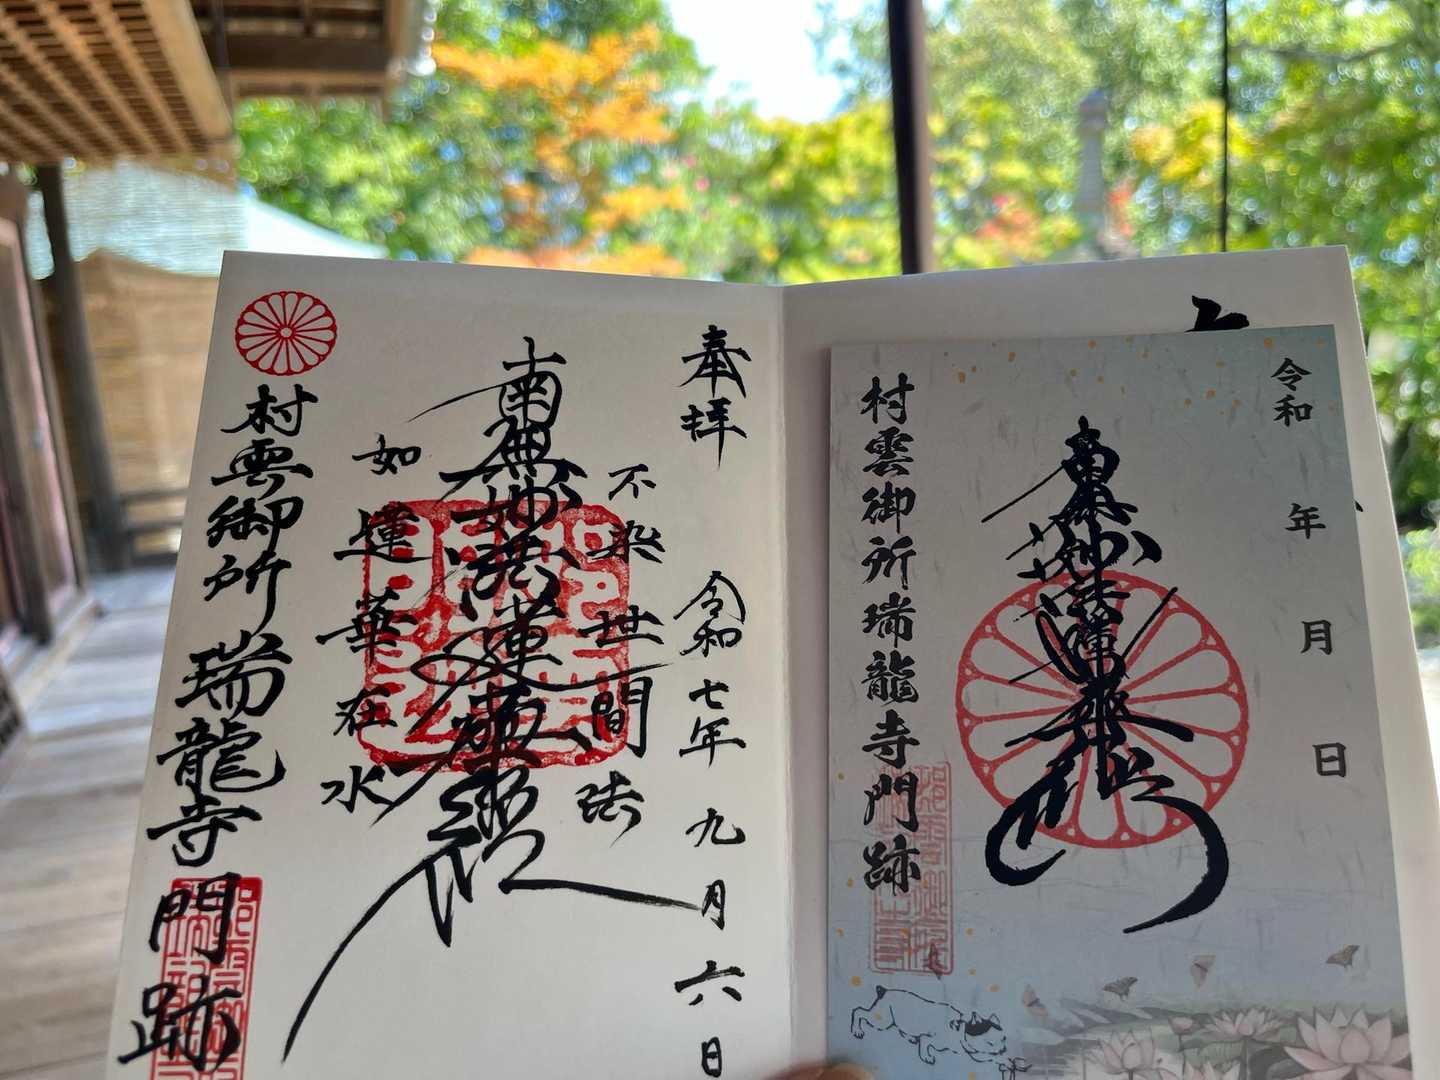 奉拝
令和七年九月六日
不染世間法
南無妙法蓮華経
如蓮華在水
村雲御所瑞龍寺門跡
令和 年 月 日
南無妙法蓮華経
村雲御所瑞龍寺門跡